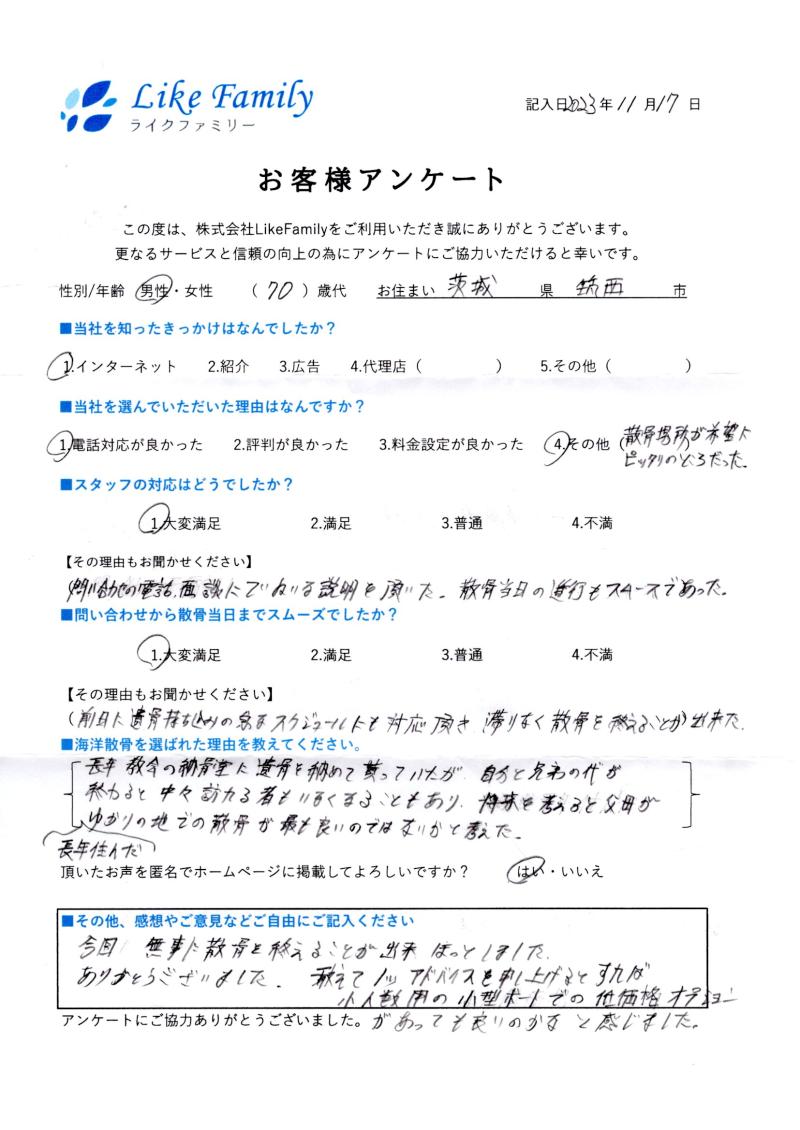 Like Family
ライクファミリー
記入日2023年11月17日
お客様アンケート
この度は、株式会社LikeFamilyをご利用いただき誠にありがとうございます。
更なるサービスと信頼の向上の為にアンケートにご協力いただけると幸いです。
性別/年齢 男性・女性 （70）歳代 お住まい 茨城 県 筑西 市
■当社を知ったきっかけはなんでしたか？
1.インターネット 2.紹介 3.広告 4.代理店（ ） 5.その他（ ）
■当社を選んでいただいた理由はなんですか？
1.電話対応が良かった 2.評判が良かった 3.料金設定が良かった 4.その他（散骨場所が希望に
ピッタリのところだった。
■スタッフの対応はどうでしたか？
1.大変満足 2.満足 3.普通 4.不満
【その理由もお聞かせください】
(問い合わせの電話、面談にていねいな説明を頂いた。散骨当日の進行もスムースであった。
■問い合わせから散骨当日までスムーズでしたか？
1.大変満足 2.満足 3.普通 4.不満
【その理由もお聞かせください】
(前日に遺骨持ち込みの急なスケジュールにも対応頂き 滞りなく散骨を終えることが)出来た。
■海洋散骨を選ばれた理由を教えてください。
長年 教会の納骨堂に遺骨を納めて貰っていたが、自分と兄弟の代が
終わると中々訪れる者もいなくなることもあり、将来を考えると父母が
ゆかりの地での散骨が最も良いのではないかと考えた。
長年住んだ
頂いたお声を匿名でホームページに掲載してよろしいですか？ はい・いいえ
■その他、感想やご意見などご自由にご記入ください
今回 無事に散骨を終えることが出来 ほっとしました。
ありがとうございました。 敢えて1つアドバイスを申し上げるとすれば
小人数用の小型ボートでの低価格オプション
アンケートにご協力ありがとうございました。があっても良いのかなと感じました。